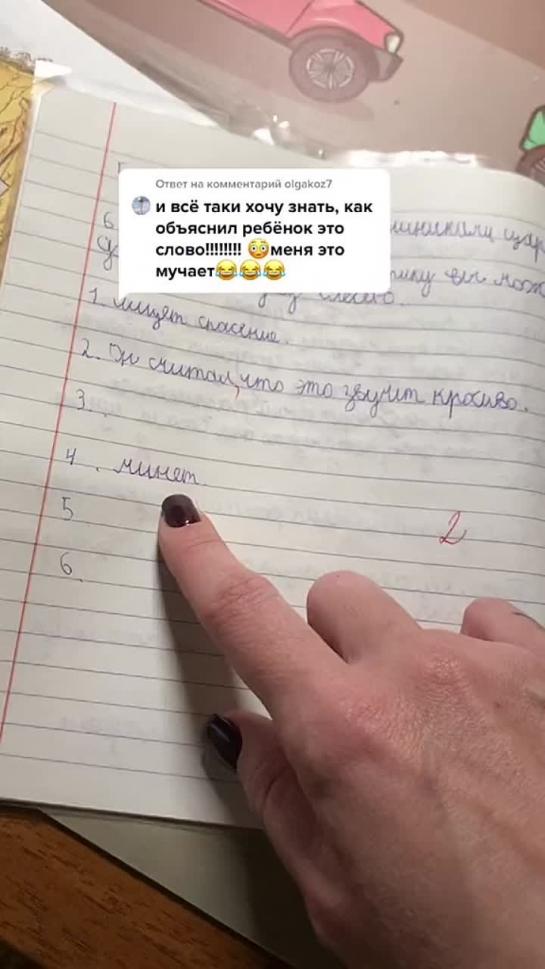 Ответ на комментарий olgakoz7
и всё таки хочу знать, как
объяснил ребёнок это
слово!!!!!!!! 😳меня это
мучает😂😂😂
6
1. ищет спасение.
2. Он считал, что это звучит красиво.
3.
4. минет.
5
2
6.